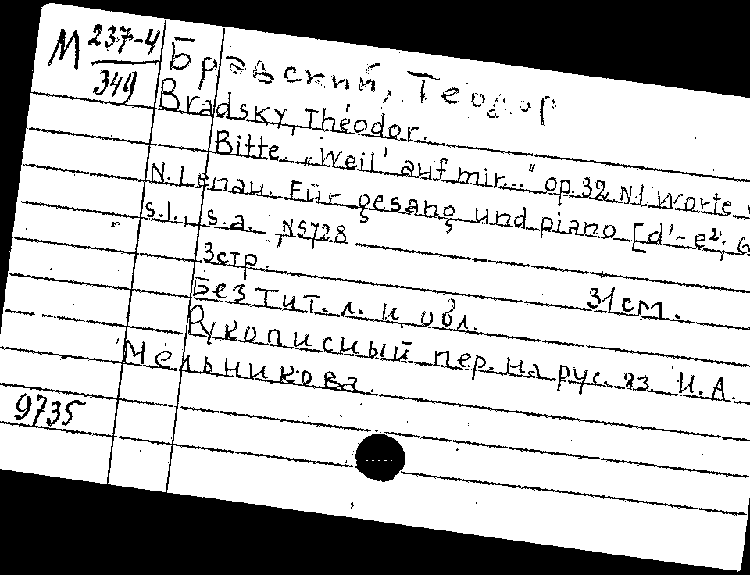 М 237-4
349
Бравский, Теодор
Bradsky, Théodor.
Bitte. „Weil' auf mir..." op.32 N.1 Worte
N. Lenau. Für gesang und piano [d'-e²; G
s.l., s.a. N5728
3стр. 31см.
Без тит. л. и обл.
Рукописный пер. на рус. яз И. А
Мельникова.
9735